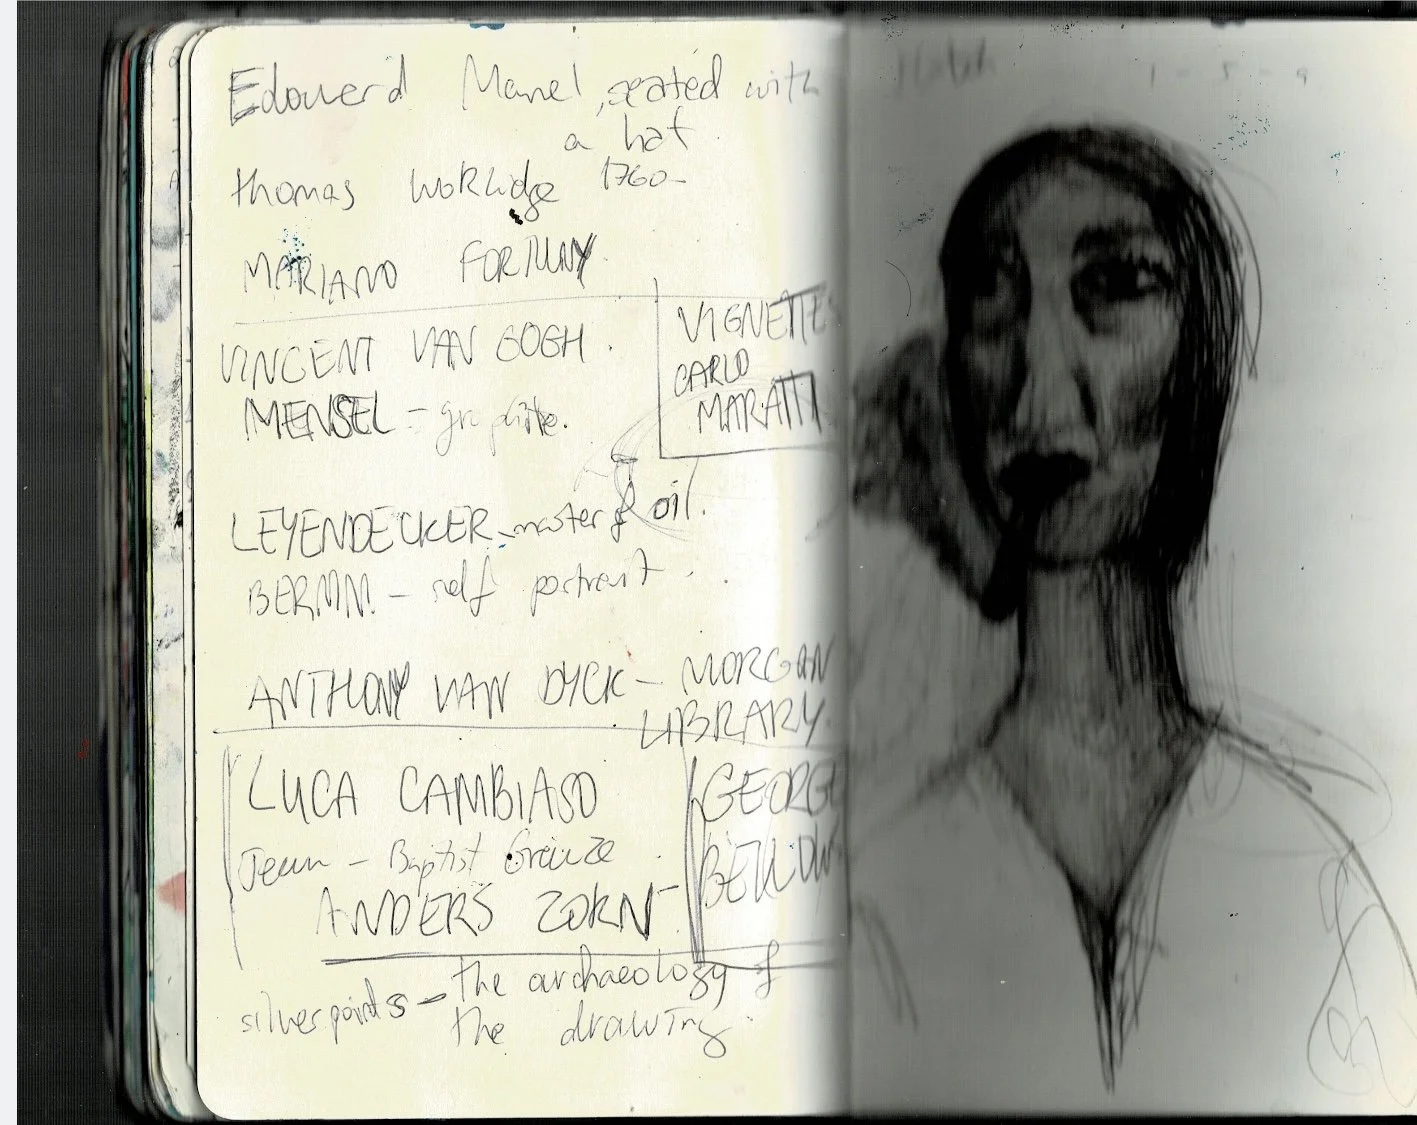 Edouerd Manel, seated with
a hat.
thomas workidge 1760-
MARIANO FORTUNY.
VINCENT VAN GOGH.
MENSEL - graphite.
VIGNETTES
CARLO
MARATTI
LEYENDECKER - master of oil.
BERNINI - self portrait.
ANTHONY VAN DYCK - MORGAN
LIBRARY.
LUCA CAMBIASO
Jean - Baptist Greuze
ANDERS ZORN -
GEORGE
BELLOWS
silverpoints - the archaeology of
the drawing.